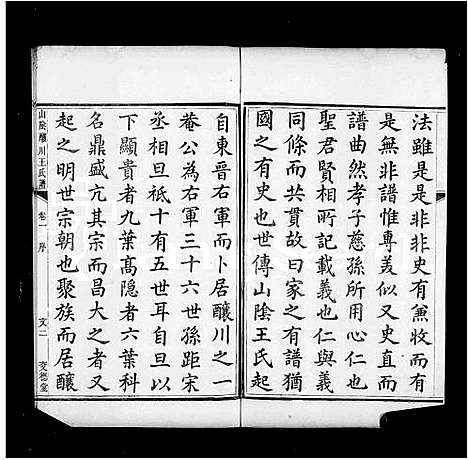 法雖是是非非史有兼收而有
是無非譜惟專美似又史直而
譜曲然孝子慈孫所用心仁也
聖君賢相所記載義也仁與義
同條而共貫故曰家之有譜猶
國之有史也世傳山陰王氏起
自東晉右軍而卜居釀川之一
菴公為右軍三十六世孫距宋
丞相旦祗十有五世耳自旦以
下顯貴者九葉高隱者六葉科
名鼎盛亢其宗而昌大之者又
起之明世宗朝也聚族而居釀
山陰釀川王氏譜
卷一 序
文二
文德堂